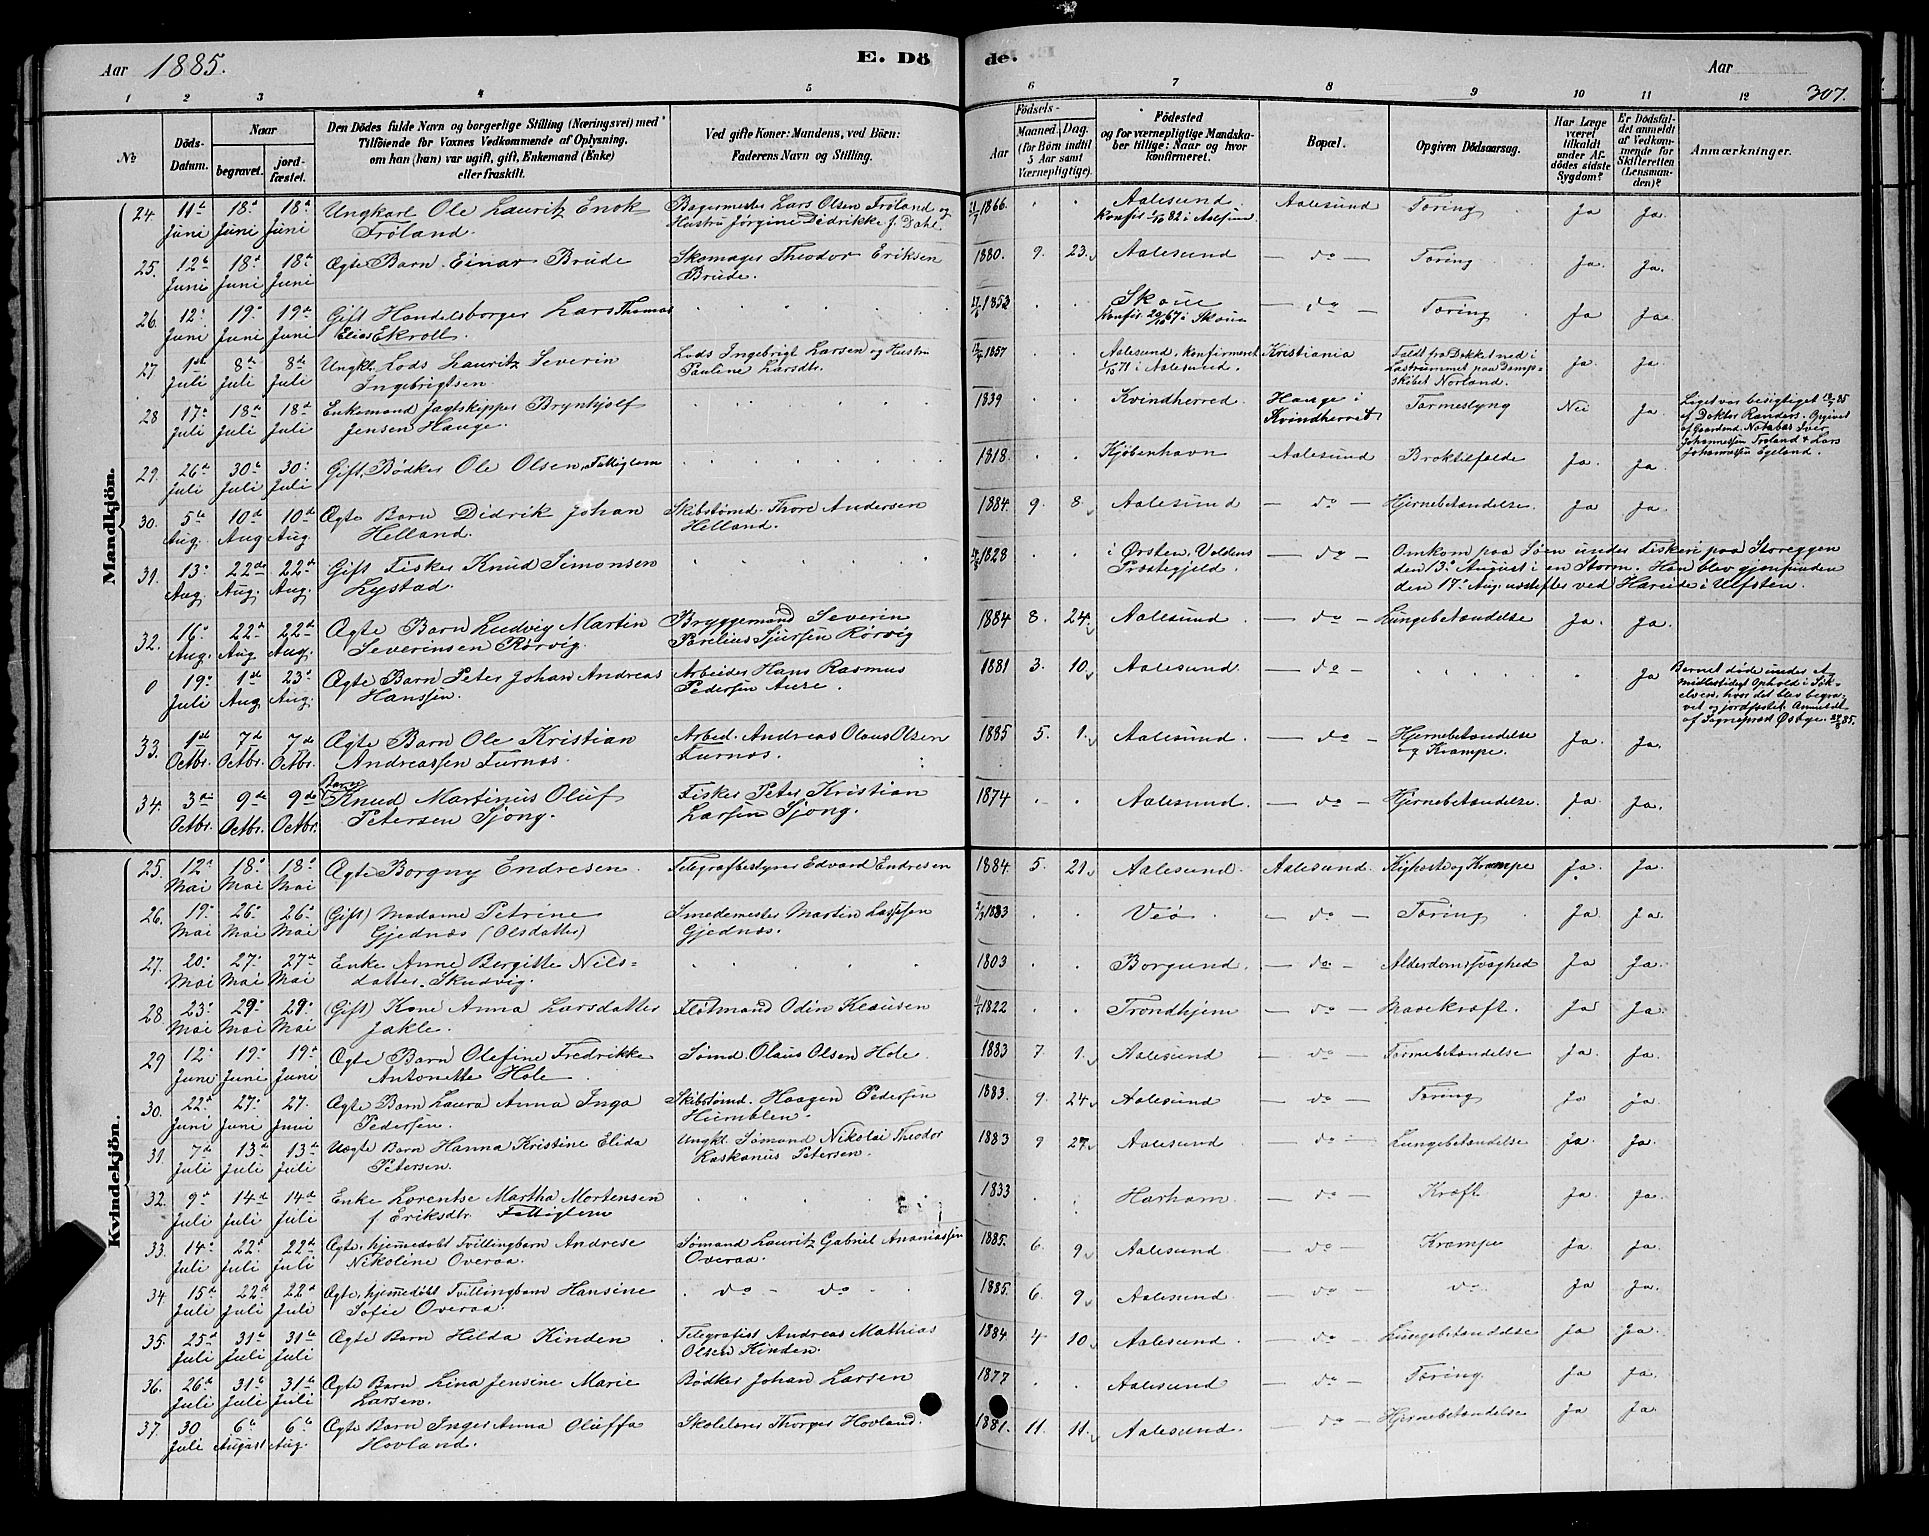 Aar 1885.
E. Döde.
Aar
307.
1 2 3 4 5 6 7 8 9 10 11 12
No
Döds-
Datum.
Naar
begravet.
jord-
fæstet.
Den Dödes fulde Navn og borgerlige Stilling (Næringsvei) med
Tilföiende for Voxnes Vedkommende af Oplysning,
om han (hun) var ugift, gift, Enkemand (Enke)
eller fraskilt.
Ved gifte Koner: Mandens, ved Börn:
Faderens Navn og Stilling.
Födsels-
Aar
Maaned. Dag.
(for Börn indtil
5 Aar samt
Værnepligtige).
Födested
og for værnepligtige Mandska-
ber tillige: Naar og hvor
konfirmeret.
Bopæl.
Opgiven Dödsaarsag.
Har Læge
været
tilkaldt
under Af-
dödes sidste
Sygdom?
Er Dödsfal-
det anmeldt
af Vedkom-
mende for
Skifteretten
(Lensman-
den)?
Anmærkninger.
Mandkjön.
24. 11te Juni 18de Juni 18de Juni Ungkarl Ole Lauritz Enok Bagermester Lars Olsen Frøland og 1866 Aalesund Aalesund Tæring Ja Ja
Frøland. Hustru Jørgine Didrikke f. Dahl. Konfir. 1/10 82 i Aalesund.
25. 12te Juni 18de Juni 18de Juni Ægte Barn Einar Brude Skomager Theodor Eriksen 1880. 9. 23. Aalesund do Tæring Ja. Ja.
Brude.
26. 12te Juni 19de Juni 19de Juni Gift Handelsborger Lars Thomas 1853 Skoue do Tæring Ja Ja
Elias Ekroll. Konfir. 20/10 67 i Skoue
27 1ste Juli 8de Juli 8de Juli Ungkl. Lods Lauritz Severin Lods Ingebrigt Larsen og Hustru 1857 Aalesund, Konfirmeret Kristiania Faldt fra Dækket ned i Ja. Ja.
Ingebrigtsen. Pauline Larsdtr. 1/10 71 i Aalesund. Lastrummet paa Damp-
skibet Norland.
28 17de Juli 18de Juli 18de Juli Enkemand Jagtskipper Brynhjolf 1839 Kvindherred. Hauge i Tarmeslyng Nei Ja Liget var besigtiget 18/7 85
Jensen Hauge. Kvindherred af Doktor Randers. Opgivet
af Gaardmd. Notabas Iver
Johannessen Frøland & Lars
Johannessen Egeland.
29. 26de Juli 30te Juli 30te Juli Gift, Bødker Ole Olsen, Fattiglem 1818 Kjöbenhavn Aalesund Broktilfælde Ja. Ja.
30. 5te Aug. 10de Aug 10de Aug. Ægte Barn Didrik Johan Skibstømd. Thore Andersen 1884 9. 8. Aalesund do Hjernebetændelse. Ja Ja
Helland. Helland.
31. 13de Aug. 22de Aug. 22de Aug. Gift Fisker Knud Simonsen 1828 i Ørsten, Voldens do Omkom paa Søen under Fiskeri paa Storeggen
Lystad Præstegjeld. den 13de August i en Storm. Han blev gjenfunden
den 17de Aug. udstefter ved Hareide i Ulfsten.
32. 16de Aug. 22de Aug 22de Aug. Ægte Barn Ludvig Martin Bryggemand Severin 1884 8. 24. Aalesund do Lungebetændelse Ja. Ja.
Severinsen Rørvig. Sjursen Rørvig
0 19de Juli 1ste Aug 23de Aug. Ægte Barn Peter Johan Andreas Arbeider Hans Rasmus 1881 3. 10. Aalesund do Ja Barnet døde under et
Hanssen. Pedersen Aure. midlertidigt Ophold i Søk-
elven, hvor det blev begra-
vet og jordfæstet. Anmeldt
af Sognepræst Østbye. 85.
33. 1ste Octbr. 7de Octbr. 7de Octbr. Ægte Barn Ole Kristian Arbed. Andreas Olaus Olsen 1885 5. 1. Aalesund. do Hjernebetændelse Ja. Ja.
Andreassen Furnæs. Furnæs. og Krampe.
34. 3die Octbr. 9de Octbr. 9de Octbr. Barn Knud Martinus Oluf Fisker Peter Kristian 1874 Aalesund. do Hjernebetændelse. Ja Ja.
Petersen Sjong. Larsen Sjong.
Kvindekjön.
25. 12te Mai 18de Mai 18de Mai Ægte Borgny Endresen. Telegrafbestyrer Edvard Endresen 1884. 5. 21. Aalesund. Aalesund. Kighoste og Krampe Ja. Ja.
26. 19de Mai 26de Mai 26de Mai (Gift) Madame Petrine Smedemester Martin Larssen 1833 Veø do Tæring Ja Ja.
Gjednæs (Olsdatter) Gjednæs.
27. 20de Mai 27de Mai 27de Mai Enke Anne Bergitte Nils- 1803 Borgund. do Alderdomssvaghed Ja Ja.
datter Skudvig.
28. 23de Mai 29de Mai 29de Mai (Gift) Kone Anna Larsdatter Fløtmand Odin Klausen 1822 Trondhjem do Mavekræft. Ja Ja.
Jakle.
29 12te Juni 19de Juni 19de Juni Ægte Barn Olefine Fredrikke Sømd. Olaus Olsen Hole. 1883 7 1. Aalesund do Tarmebetændelse Ja. Ja.
Antonette Hole.
30. 22de Juni 27de Juni 27. Juni Ægte Barn Laura Anna Inga Skibstømd. Haagen Pedersen 1883. 9. 24. Aalesund do Tæring Ja Ja.
Pedersen. Humblen.
31. 7de Juli 13de Juli 13de Juli Uægte Barn Hanna Kristine Elida Ungkl. Sømand Nikolai Theodor 1883 9 27. Aalesund do Lungebetændelse Ja. Ja.
Petersen. Raskanus Petersen.
32. 9de Juli 14de Juli 14de Juli Enke Lorentse Martha Mortensen 1833 Harham. do Kræft Ja. Ja.
f. Eriksdtr. Fattiglem
33. 14de Juli 22de Juli 22de Juli Ægte, hjemmedøbt Tvillingbarn Andrese Sømand Lauritz Gabriel Ananiassen 1885. 6. 9. Aalesund do Krampe Ja. Ja.
Nikoline Overaa. Overaa.
34. 15de Juli 22de Juli 22de Juli Ægte, hjemmedøbt Tvillingbarn Hansine do do 1885. 6. 9. Aalesund. do do Ja Ja.
Sofie Overaa.
35. 25de Juli 31te Juli 31te Juli Ægte Barn Hilda Kinden Telegrafist Andreas Mathias 1884. 4 10. Aalesund. do Lungebetændelse Ja Ja.
Olsen Kinden.
36. 26de Juli 31te Juli 31te Juli Ægte Barn Lina Jensine Marie Bødker Johan Larsen 1877 Aalesund do Tæring. Ja Ja.
Larsen.
37. 30 Juli 6te August 6te Aug. Ægte Barn Inger Anna Oluffa Skolelærer Thorger Hovland. 1881. 11. 11. Aalesund. do Hjernebetændelse Ja Ja.
Hovland.